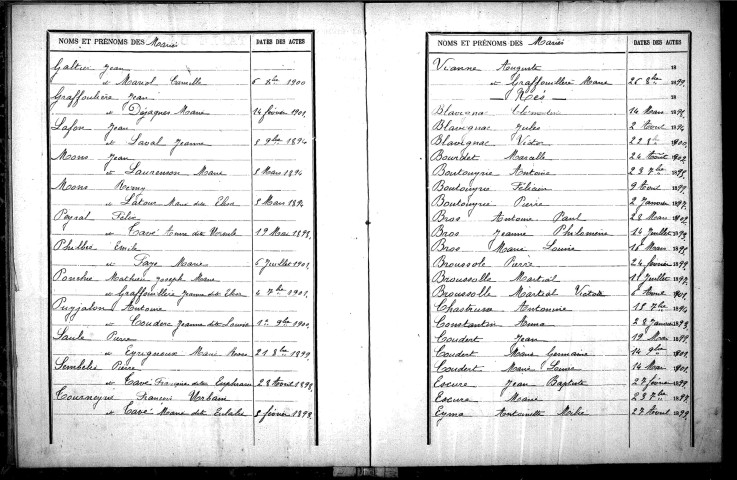 NOMS ET PRÉNOMS DES Mariés DATES DES ACTES
Galtier Jean
et Mariol Camille 6 8bre 1900
Graffoulière Jean
et Dejagnes Marie 14 février 1901
Lafon Jean
et Laval Jeanne 5 9bre 1894
Mons Jean
et Laurenson Marie 5 Mars 1894
Mons Remy
et Latour Marie dite Elisa 5 Mars 1894
Peyral Félix
et Cavé Anne dite Ursule 19 Mai 1898
Philbée Emile
et Faye Marie 6 Juillet 1901
Ponchie Mathieu Joseph Marie
et Graffouillère Jeanne dite Elisa 4 7bre 1901
Puyjalon Antoine
et Couderc Jeanne dite Louise 1er 9bre 1900
Saule Pierre
et Eyrugueoux Marie Rose 21 8bre 1899
Sembeles Pierre
et Cavé Françoise dite Euphrasie 28 Août 1898
Tourneyre François Urbain
et Cavé Marie dite Eulalie 8 février 1898
NOMS ET PRÉNOMS DES Mariés DATES DES ACTES
Vianne Auguste 18
et Graffouillère Marie 26 8bre 1899
— Nés — 18
Blavignac Clémentine 14 Mars
Blavignac Jules 2 Août
Blavignac Victor 22
Bourdet Marcelle 24 Août 1902
Boutouyrie Antoine 23 7bre
Boutouyrie Félicien 9 Avril 1899
Boutouyrie Pierre 2 Janvier 1897
Bros Antoine Paul 28 Mars
Bros Jeanne Philomène 14 Juillet
Bros Marie Louise 16 Mars
Broussole Pierre 24 février 1899
Broussolle Martial 11 Juillet 1897
Broussolle Martial Victor 6 Avril 1901
Chastrusse Antonine 18 7bre 1894
Constanton Anna 28 Janvier 1898
Coudert Jean 19 Mars 1899
Coudert Marie Germaine 14 9bre 1901
Coudert Marie Louise 14 Mars 1901
Escure Jean Baptiste 27 février 1899
Escure Marie 23 7bre 1897
Eyma Antoinette 27 Avril 1899